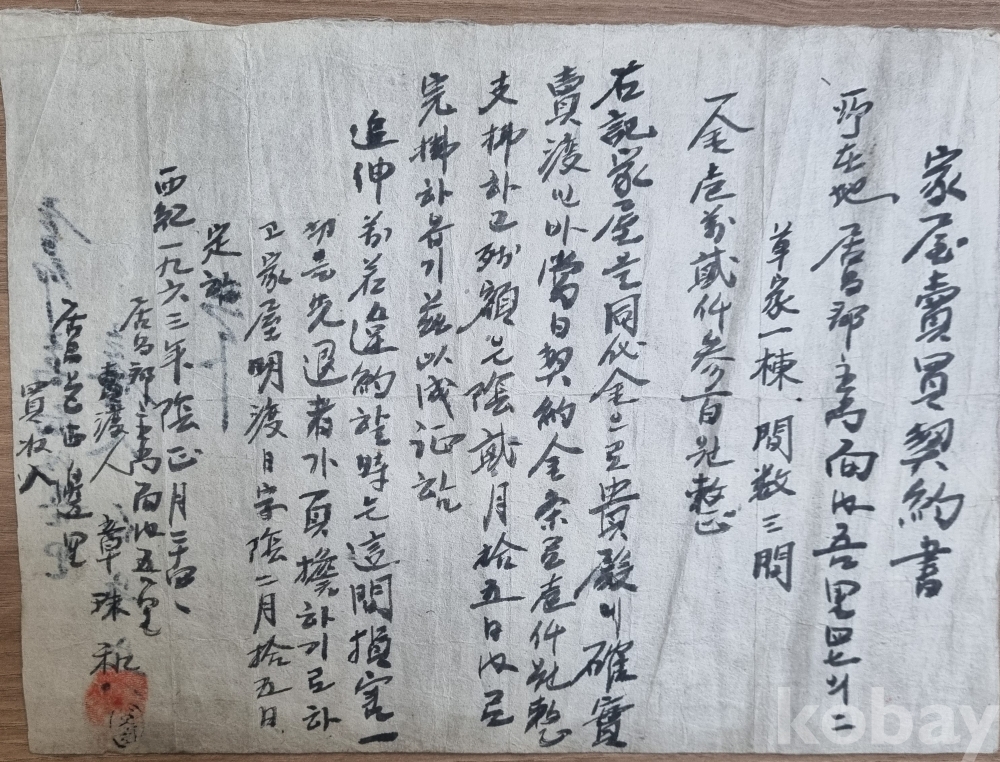 家屋賣買契約書
所在地 居昌郡主尙面內吾里四七의二
草家一棟. 間数三間
一金壱萬貳仟參百원整
右記家屋을同代金으로貴殿에確實
賣渡이바當日契約金条로壹仟원整
支拂하고殘額은陰貳月拾五日內로
完拂하옵기玆以成証함
追伸 萬若違約할時는這間損害一
切을先退者가負擔하기로하
고家屋明渡日字陰二月拾五日
定함
西紀一九六三年陰正月二十四日
居昌郡主尙面內五里
賣渡人 章珠 印
居昌邑正邊里
買收人
kobay